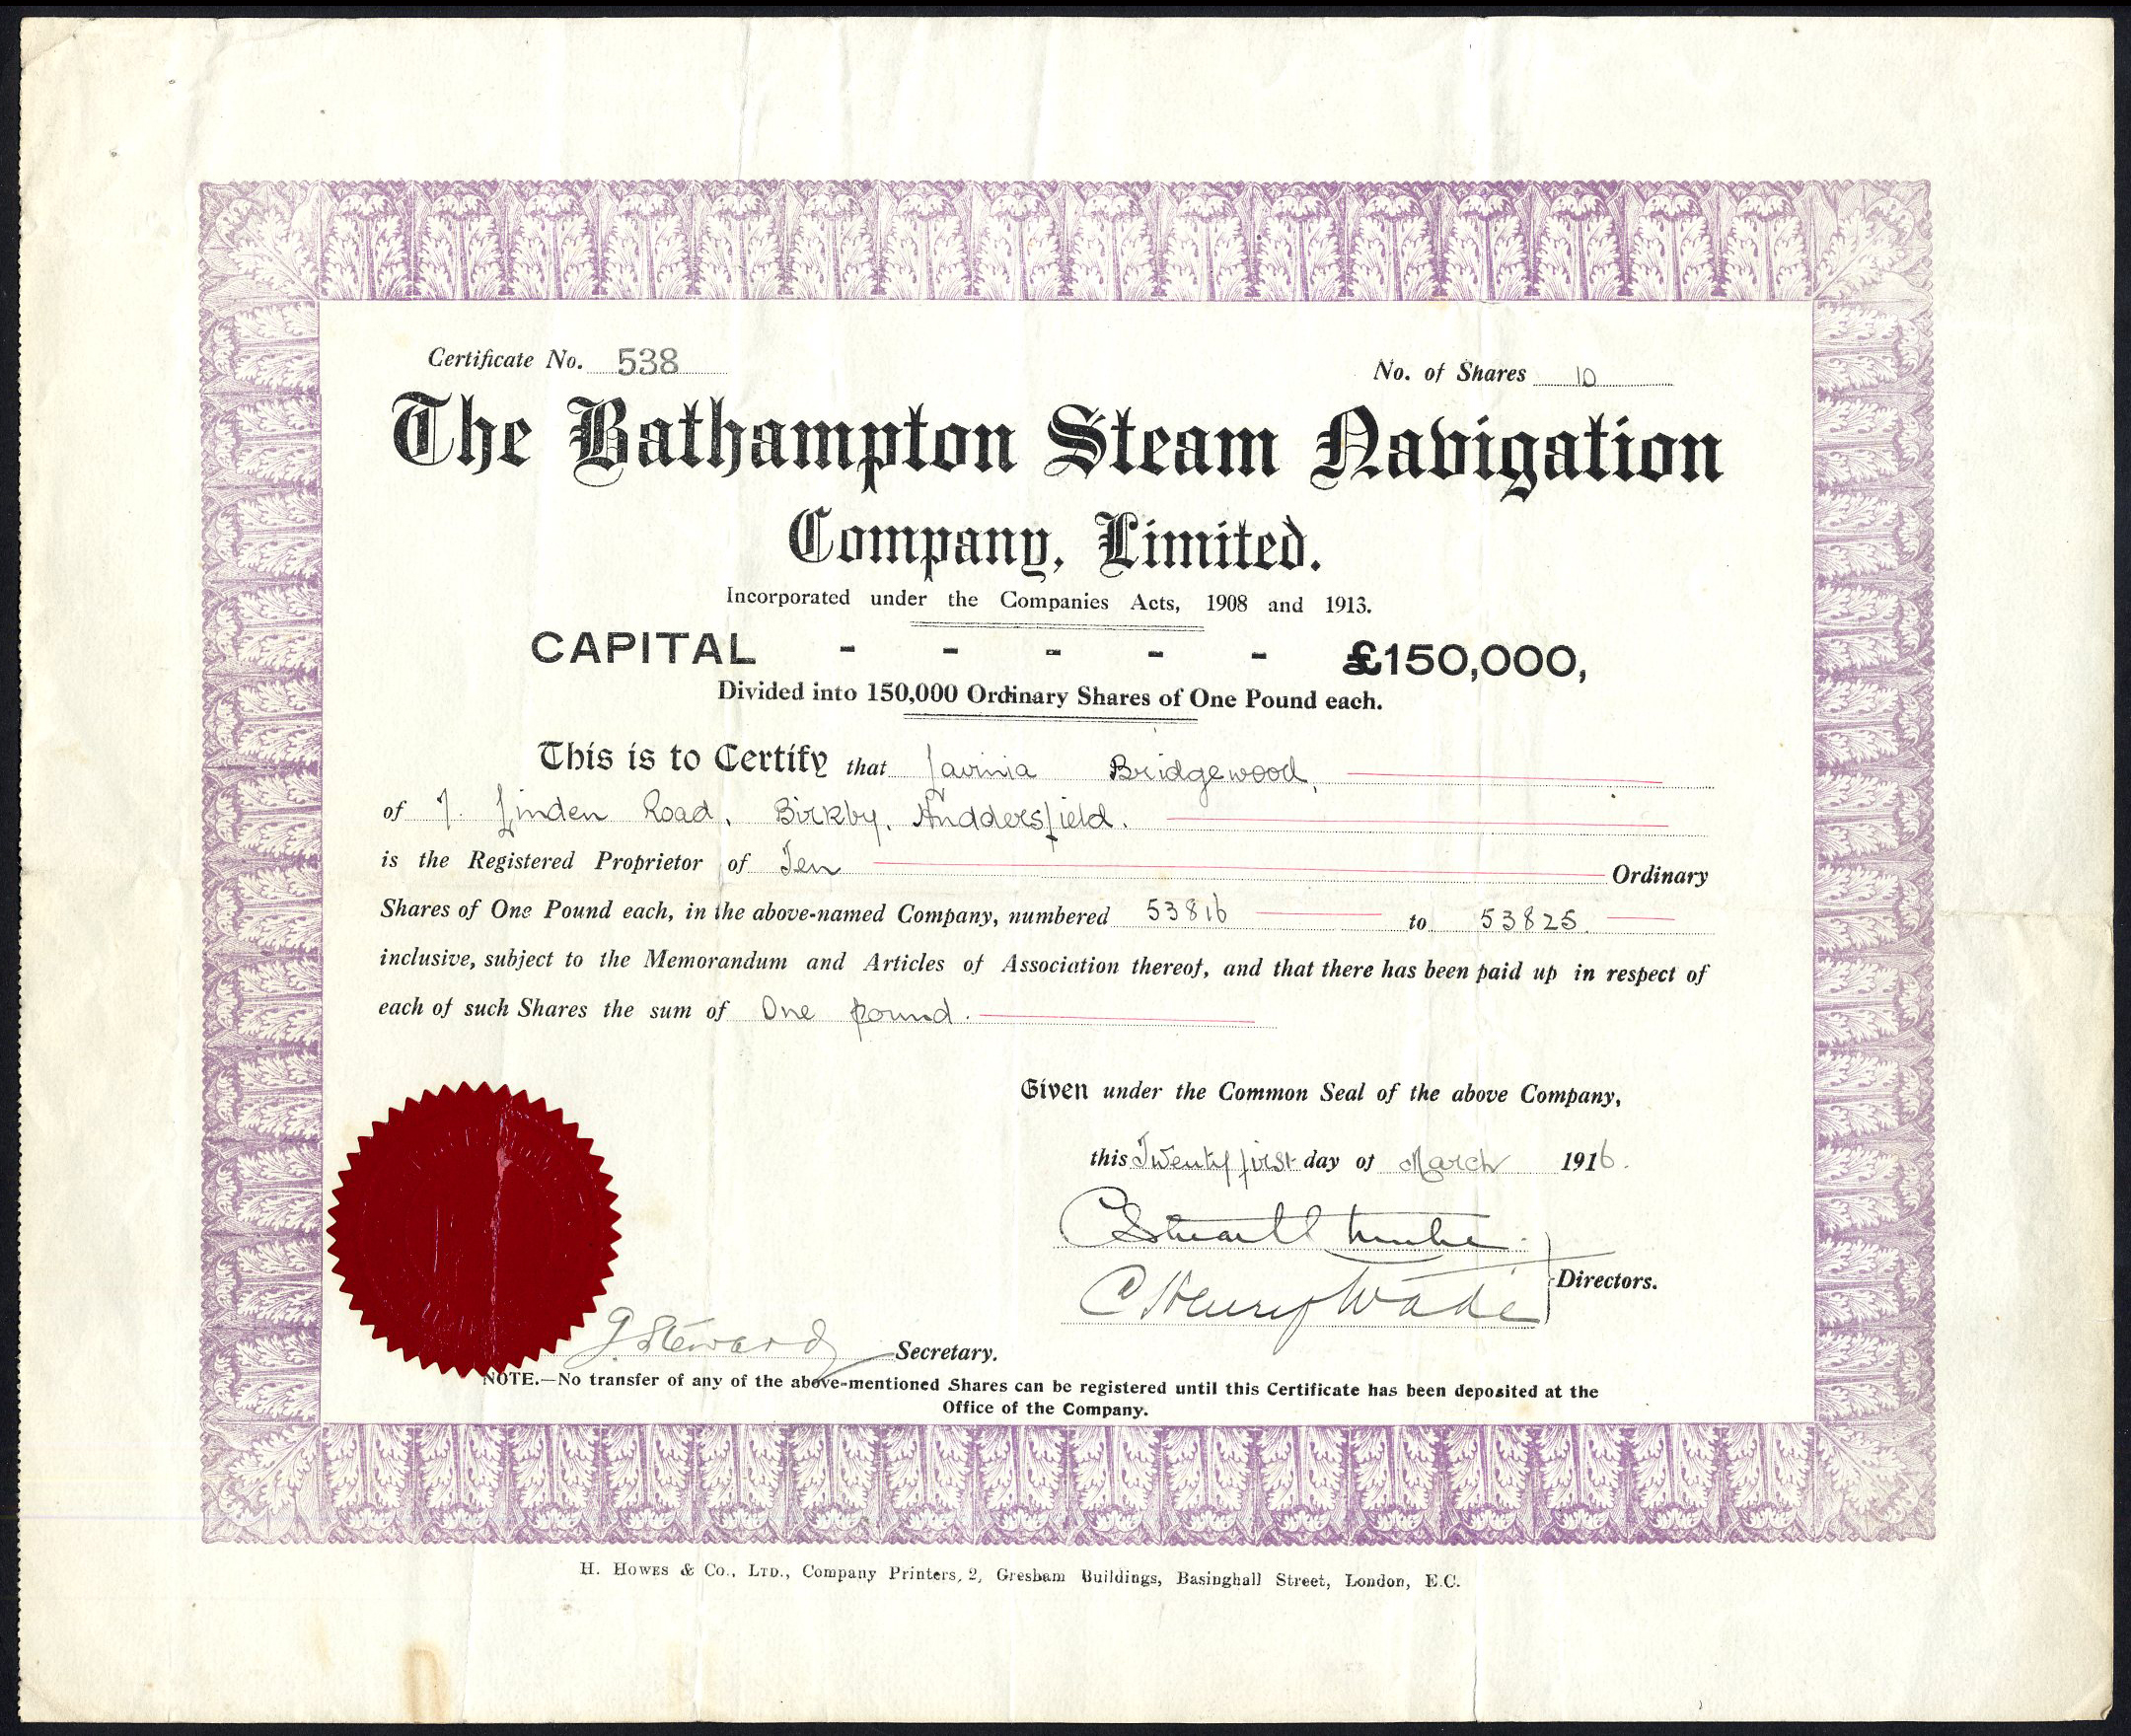 Certificate No. 538
No. of Shares 10
The Bathampton Steam Navigation
Company, Limited.
Incorporated under the Companies Acts, 1908 and 1913.
CAPITAL - - - - - £150,000,
Divided into 150,000 Ordinary Shares of One Pound each.
This is to Certify that Lavinia Bridgewood,
of 7. Linden Road, Birkby, Huddersfield.
is the Registered Proprietor of Ten Ordinary
Shares of One Pound each, in the above-named Company, numbered 53816 to 53825.
inclusive, subject to the Memorandum and Articles of Association thereof, and that there has been paid up in respect of
each of such Shares the sum of One pound.
Given under the Common Seal of the above Company,
this Twenty first day of March 1916.
C Stuart
C Henry Wade
Directors.
J. Steward Secretary.
NOTE.—No transfer of any of the above-mentioned Shares can be registered until this Certificate has been deposited at the
Office of the Company.
H. HOWES & CO., LTD., Company Printers, 2, Gresham Buildings, Basinghall Street, London, E.C.